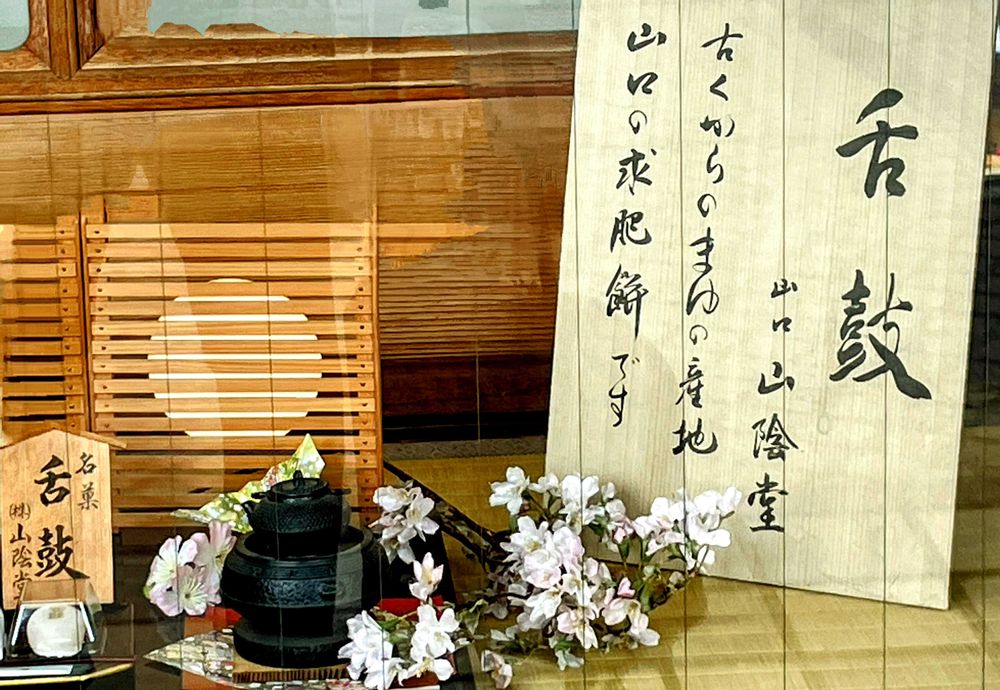 舌鼓
山口 山陰堂
古くからのまゆの産地
山口の求肥餅です
名菓
舌鼓
㈱山陰堂